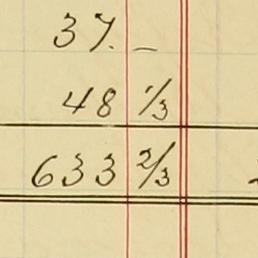 37. –
48 1/3
633 2/3